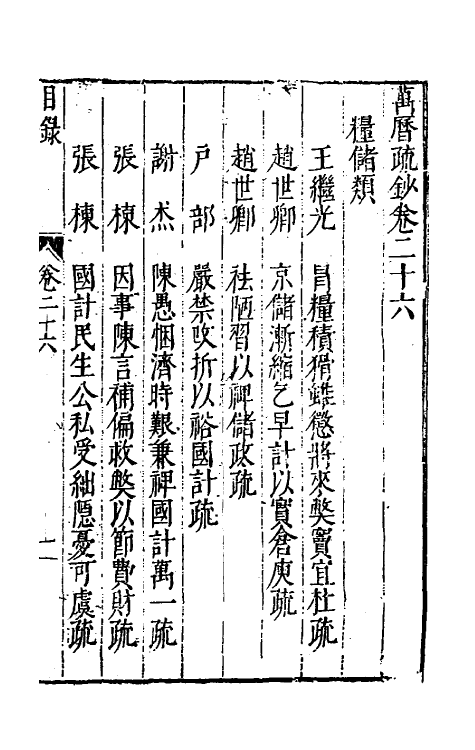 萬曆疏鈔卷二十六
糧儲類
王繼光 冐糧積猾雖懲將來獘竇宜杜疏
趙世卿 京儲漸縮乞早計以實倉庾疏
趙世卿 祛陋習以裨儲政疏
戶部 嚴禁改折以裕國計疏
謝杰 陳愚悃濟時艱兼裨國計萬一疏
張棟 因事陳言補偏救獘以節費財疏
張棟 國計民生公私受絀隱憂可虞疏
目錄 卷二十六